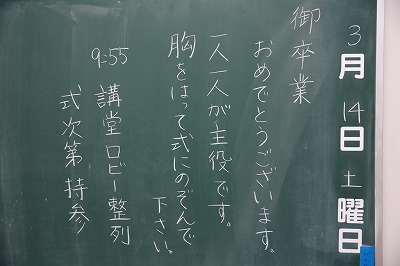 3月14日土曜日
御卒業
おめでとうございます。
一人一人が主役です。
胸をはって式にのぞんで
下さい。
9:55 講堂ロビー整列
式次第持参